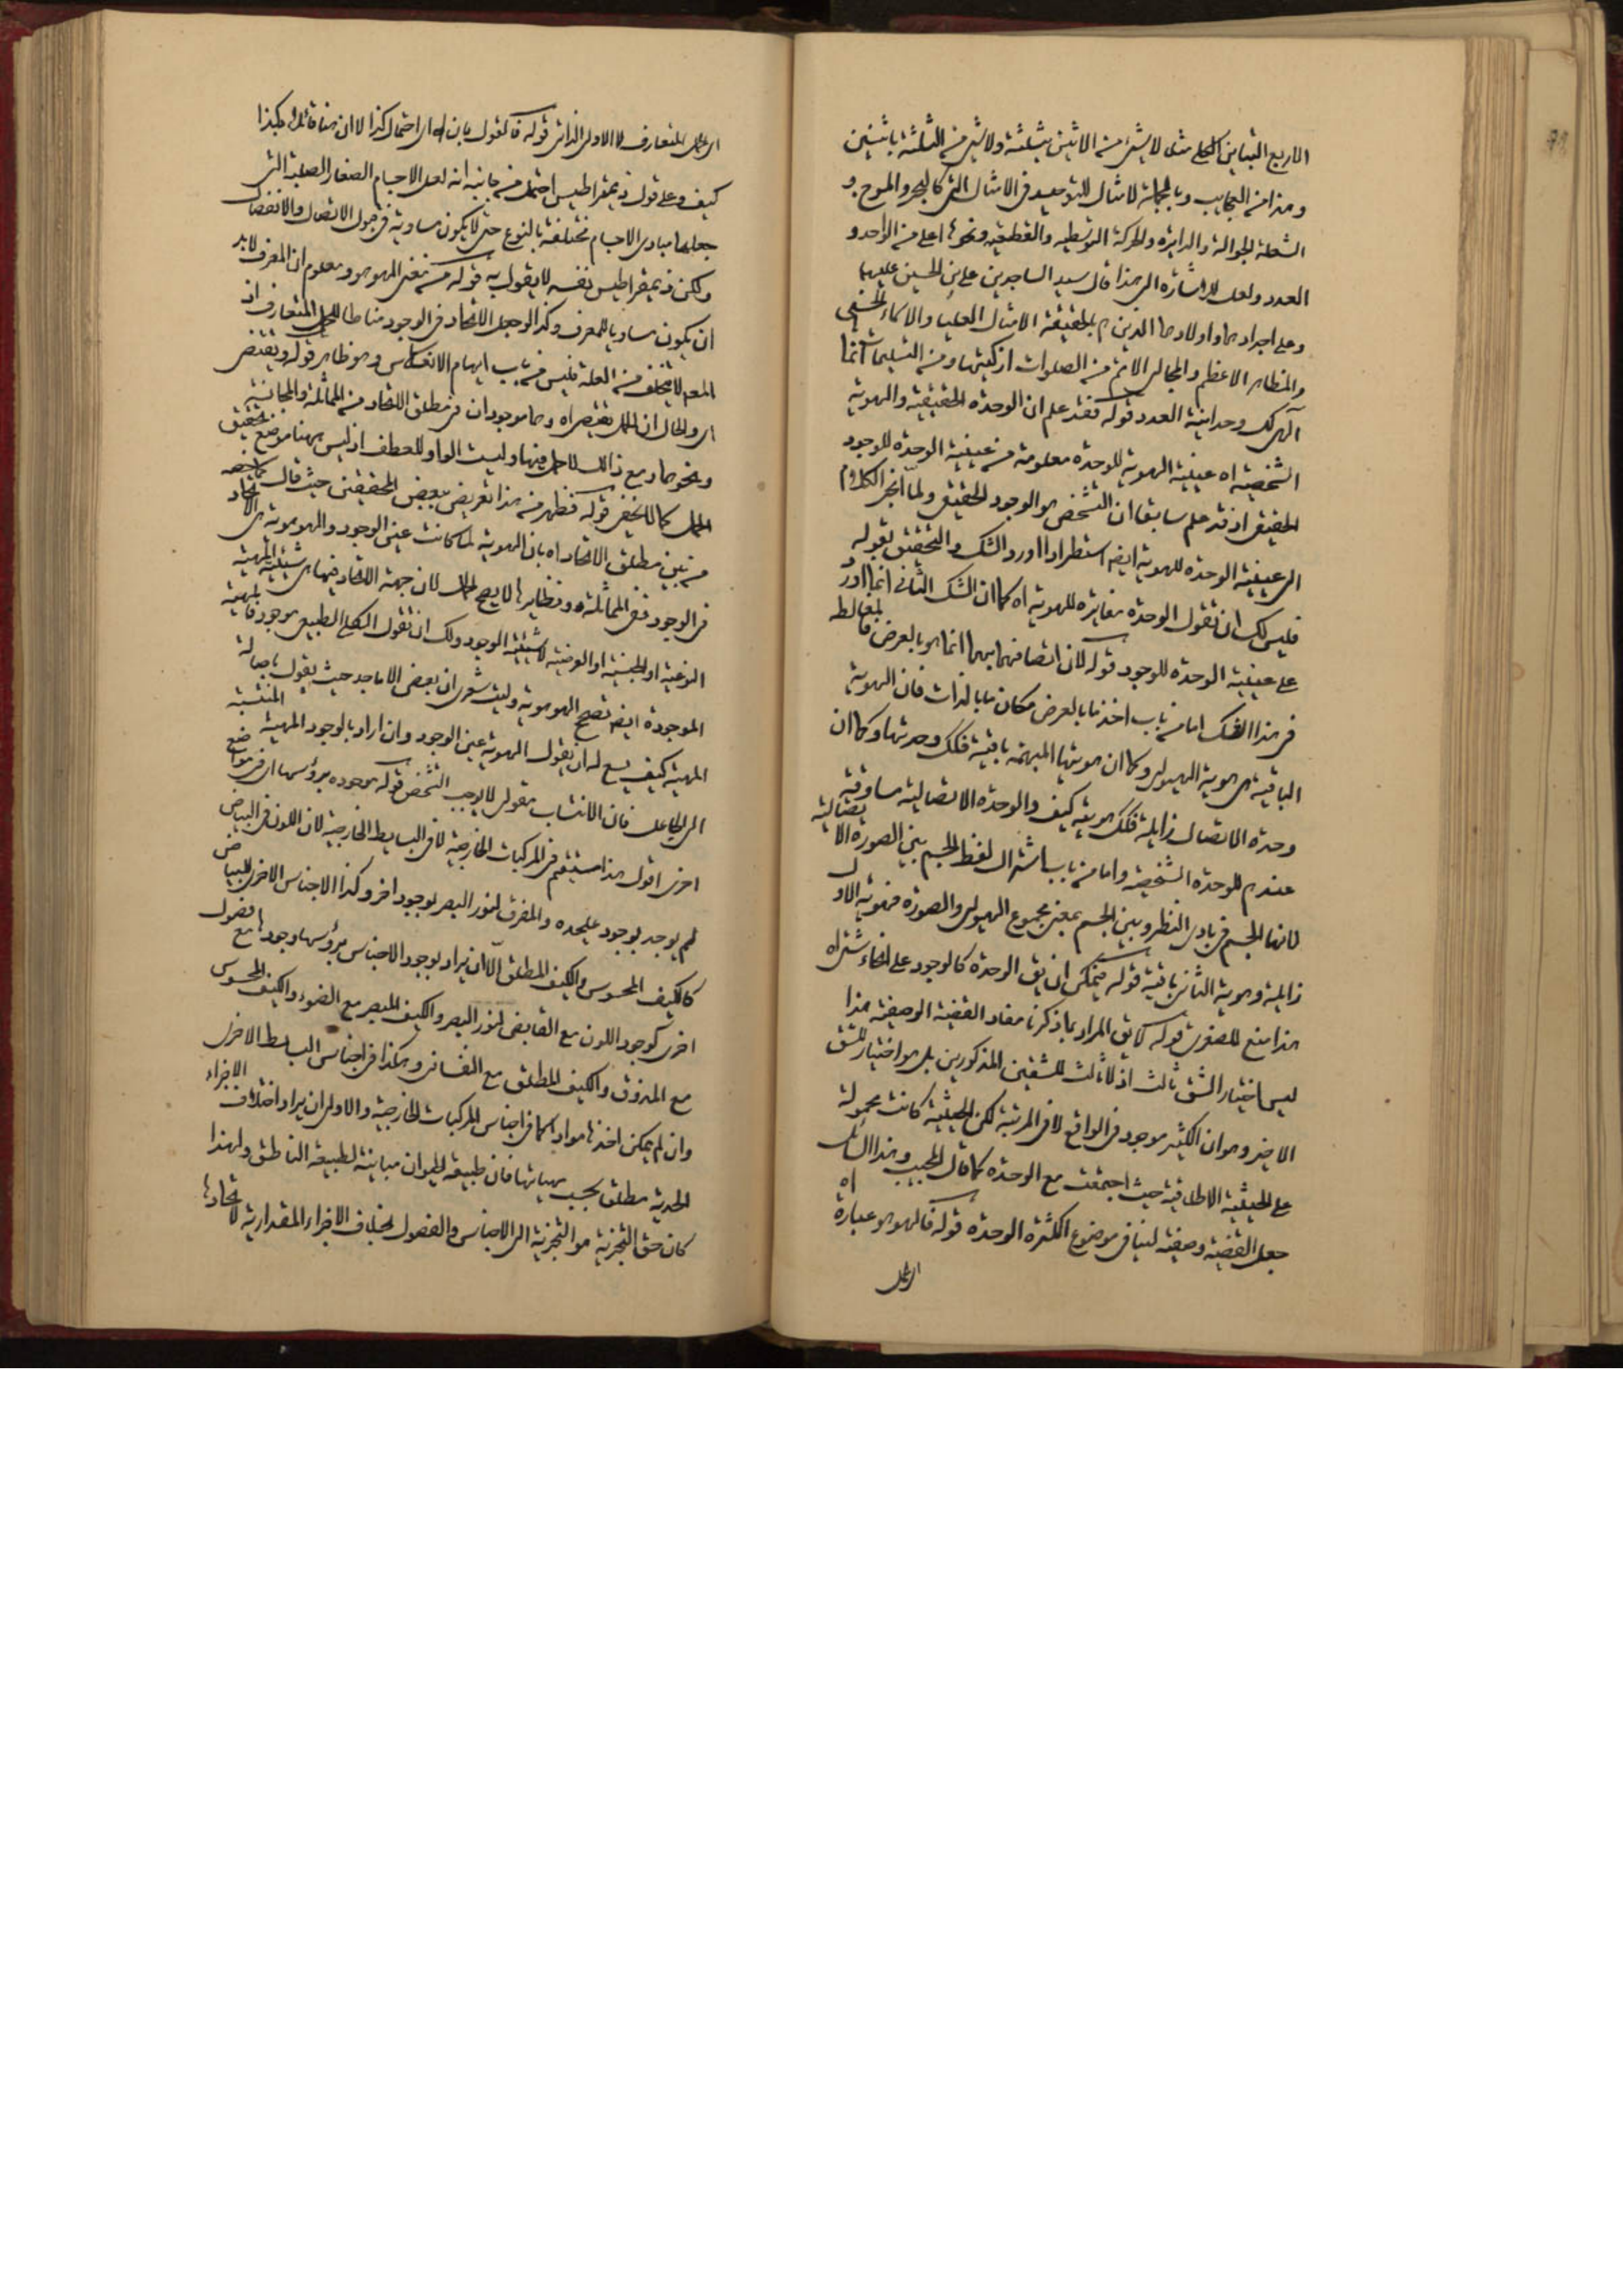 الاربع التباين الكلى مثل لا شىء من الاثنين بثلثة ولا شىء من الثلثة باثنين
وهذا من العجايب وبالجملة لا مثال للتوحيد فى الامثال التى كالبحر والموج و
الشعلة الجوالة والدايرة والحركة التوسطيه والقطعيه ونحوها اعلى من الواحد و
العدد ولعل للاشارة الى هذا قال سيد الساجدين على بن الحسين عليهما
وعلى اجدادهما واولادهما الذين هم بالحقيقة الامثال العليا والاسماء الحسنى
والمظاهر الاعظم والمجالى الاتم من الصلوات ازكيتها ومن التسليمات اتمها
الهى لك وحدانية العدد قوله فقد علم ان الوحدة الحقيقية والهوية
الشخصية اه عينية الهوية للوحدة معلومة من عينية الوحدة للوجود
الحقيقى اذ قد علم سابقا ان التشخص هو الوجود الحقيقى ولما انجر الكلام
الى عينية الوحدة للهوية ايضا استطرادا اورد الشك والتحقيق بقوله
فليس لك ان تقول الوحدة مغايرة للهوية اه كما ان الشك الثانى انما اورد
على عينية الوحدة للوجود قوله لان اتصافهما بهما انما هو بالعرض فالمغالطة
فى هذا الشك اما من باب اخذ ما بالعرض مكان ما بالذات فان الهوية
الباقية هى هوية الهيولى وكما ان هويتها المبهمة باقية فكذلك وحدتها وكما ان
وحدة الاتصال زايلة فكذلك هويته كيف والوحدة الاتصالية مساوقة
عندهم للوحدة الشخصية واما من باب اشتراك لفظ الجسم بين الصورة الاتصالية
لانها الجسم فى بادى النظر وبين الجسم بمعنى مجموع الهيولى والصورة فهوية الاول
زايلة وهوية الثانى باقية قوله فيمكن ان يق الوحدة كالوجود على انحاء شتى اه
هذا منع للصغرى قوله كايق المراد بما ذكرنا مفاد القضية الوصفية هذا
ليس اختيار الشق ثالث اذ لا ثالث للشقين المذكورين بل هو اختيار للشق
الاخير وهو ان الكثير موجود فى الواقع لا فى المرتبة لكن الحيثية كانت محمولة
على الحيثية الاطلاقية حيث اجتمعت مع الوحدة كما قال المجيب وهذا السائل
جعل القضية وصفية لينافى موضوع الكثرة الوحدة قوله فالهو هو عبارة اه
اى الحمل
اى الحمل المتعارف لا الاولى الذاتى قوله فالقول بان اه اى احتمال كذا لا ان هنا قائلا هكذا
كيف وعلى قول ذيمقراطيس احتمل من جانبه انه لعل الاجسام الصغار الصلبة التى
جعلها مبادى الاجسام مختلفة بالنوع حتى لا يكون مساوية فى قبول الاتصال والانفصال
ولكن ذيمقراطيس نفسه لا يقول به قوله من معنى الهوهو ومعلوم ان المعرف لا بد
ان يكون مساويا للمعرف وكذا لو جعل الاتحاد فى الوجود مناطا للحمل المتعارف اذ
المعلول لا يتخلف من العلة فليس من باب ايهام الانعكاس وهو ظاهر قوله ويقتضى
اى والحال ان الحمل يقتضى اه وهما موجودان فى مطلق الاتحاد من المماثلة والمجانسة
ونحوهما ومع ذلك لا حمل فيها وليست الواو للعطف اذ ليس ههنا موضع تحقيق
الحمل كما لا يخفى قوله فظهر من هذا تعريض ببعض المحققين حيث قال
من تبين مطلق الاتحاد اه بان الهوية لما كانت عين الوجود والهوهوية هى الاتحاد
فى الوجود ففى المماثلة ونظايرها لا يصح الحمل لان جهة الاتحاد فيها هى شيئية المهية
النوعية او الجنسية او العرضية لا شيئية الوجود ولك ان تقول الكلى الطبيعى موجود فالمهية
الموجودة ايضا تصحح الهوهوية وليت شعرى ان بعض الاماجد حيث يقول باصالة
المهية كيف يسع له ان يقول الهوية عين الوجود وان اراد بالوجود المهية المنتسبة
الى الجاعل فان الانتساب مقولى لا يوجب التشخص قوله موجودة برؤسها اى فى مواضع
اخرى اقول هذا مستقيم فى المركبات الخارجية لا فى البسايط الخارجية لان اللون فى البياض
لم يوجد بوجود عليحده والمفرق لنور البصر بوجود اخر وكذا الاجناس الاخرى للبياض
كالكيف المحسوس والكيف المطلق الا ان يراد بوجود الاجناس برؤسها وجودها مع فصول
اخرى كوجود اللون مع القابض لنور البصر والكيف المبصر مع الضوء والكيف المحسوس
مع المذوق والكيف المطلق مع النفسانى وهكذا فى اجناس البسايط الاخرى
وان لم يمكن اخذها مواد كما فى اجناس المركبات الخارجية والاولى ان يراد اختلاف الاجزاء
الحدية مطلق بحسب مهياتها فان طبيعة الحيوان مباينة لطبيعة الناطق ولهذا
كان حق التجزية هو التجزية الى الاجناس والفصول بخلاف الاجزاء المقدارية لاتحادها